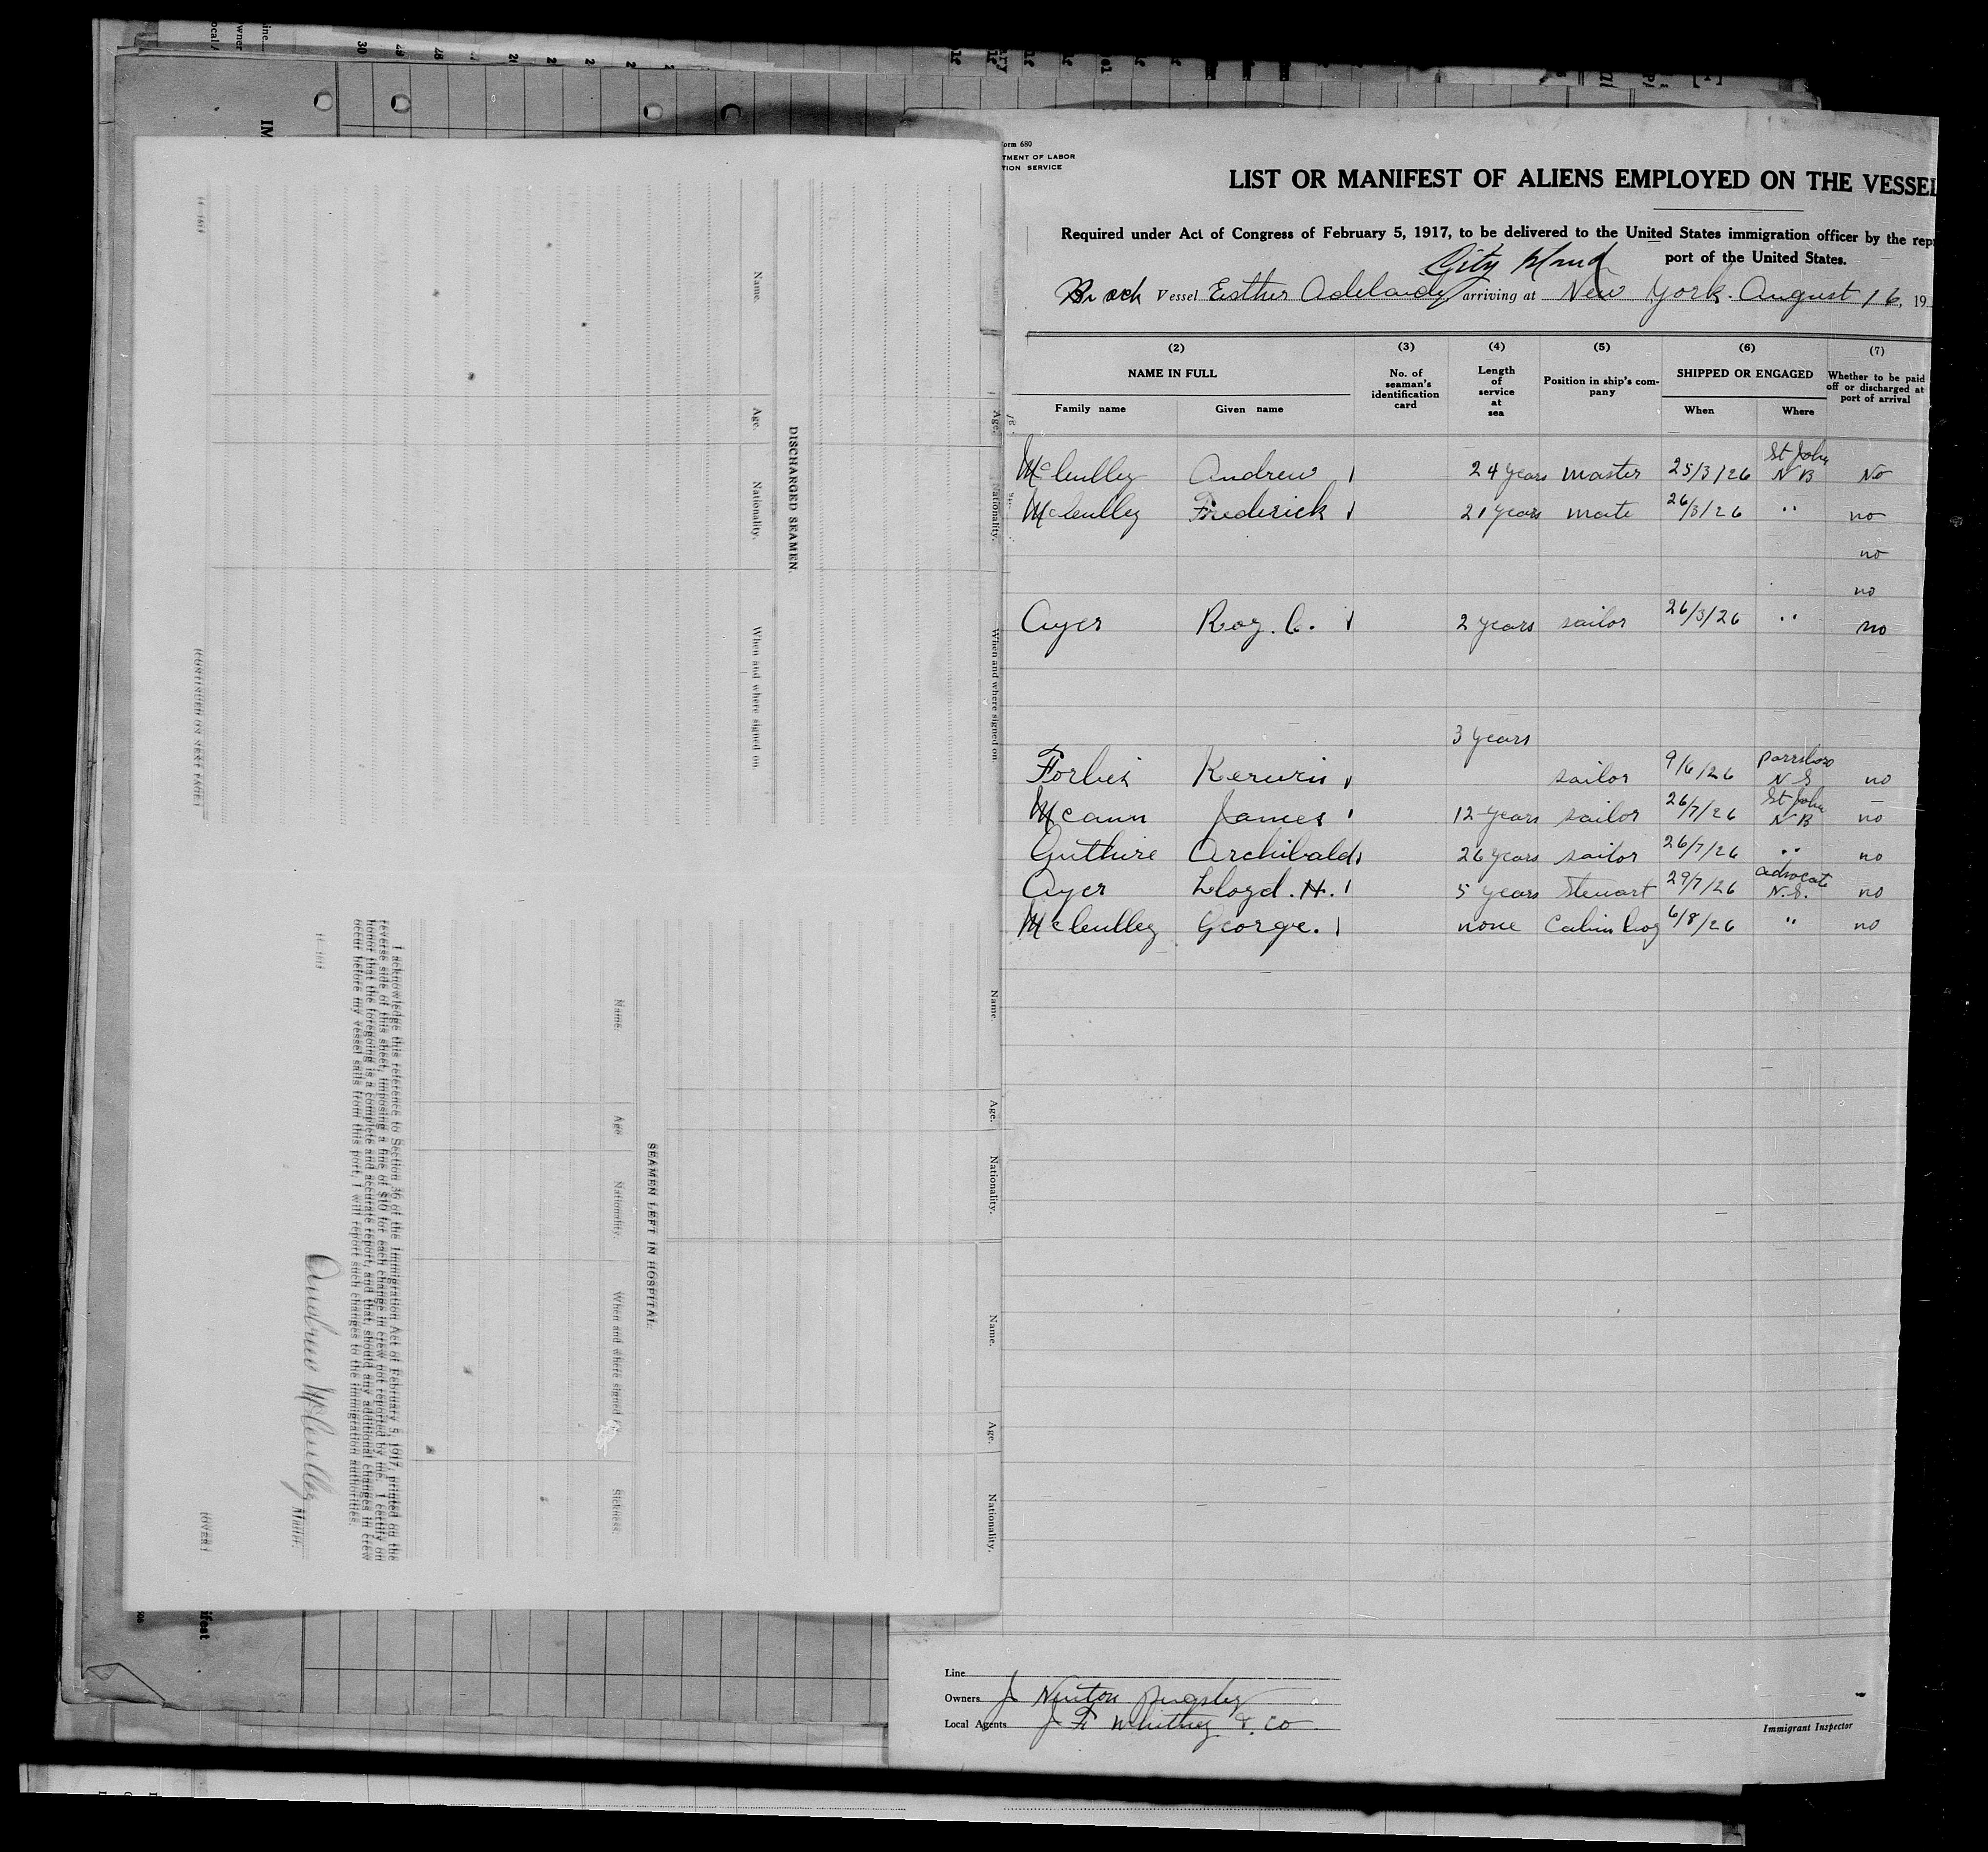 Form 680
TMENT OF LABOR
TION SERVICE
LIST OR MANIFEST OF ALIENS EMPLOYED ON THE VESSEL
Required under Act of Congress of February 5, 1917, to be delivered to the United States immigration officer by the rep
port of the United States.
City Island
Br sch Vessel Esther Adelaide arriving at New York. August 16, 19
(2) (3) (4) (5) (6) (7)
NAME IN FULL No. of seaman's identification card Length of service at sea Position in ship's company SHIPPED OR ENGAGED Whether to be paid off or discharged at port of arrival
Family name Given name When Where
McCulley Andrew 24 years master 25/3/26 St John N B No
McCulley Frederick 21 years mate 26/3/26 " no
no
no
Ayer Roy. C. 2 years sailor 26/3/26 " no
3 years
Forbes sailor 9/6/26 Parrsboro N S no
Mcann James 12 years sailor 26/7/26 St John N B no
Guthire Archibald 26 years sailor 26/7/26 " no
Ayer Lloyd. H. 5 years Steuart 29/7/26 advocate N.S. no
McCulley George. none Cabin boy 6/8/26 " no
Line
Owners J Newton Pugsley
Local Agents J F Whitney & Co
Immigrant Inspector
DISCHARGED SEAMEN.
Name. Age. Nationality. When and where signed on.
(CONTINUED ON NEXT PAGE)
SEAMEN LEFT IN HOSPITAL.
Name. Age. Nationality. When and where signed on. Sickness.
I acknowledge this reference to Section 36 of the Immigration Act of February 5, 1917, printed on the
reverse side of this sheet, imposing a fine of $10 for each change in crew not reported by me. I certify on
honor that the foregoing is a complete and accurate report, and that, should any additional changes in crew
occur before my vessel sails from this port, I will report such changes to the immigration authorities.
Andrew McCulley Master.
(OVER)